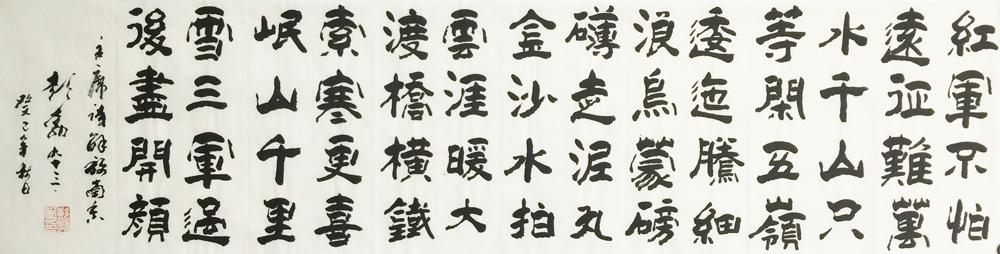 紅軍不怕
遠征難萬
水千山只
等閑五嶺
逶迤騰細
浪烏蒙磅
礴走泥丸
金沙水拍
雲涯暖大
渡橋橫鐵
索寒更喜
岷山千里
雪三軍過
後盡開顏
主席詩
九十三
癸巳年秋月